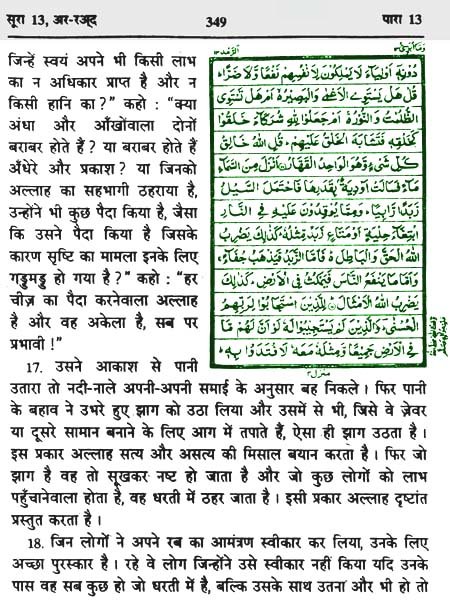 सूरा 13, अर-रअ्द
349
पारा 13
जिन्हें स्वयं अपने भी किसी लाभ
का न अधिकार प्राप्त है और न
किसी हानि का?” कहो : “क्या
अंधा और आँखोंवाला दोनों
बराबर होते हैं? या बराबर होते हैं
अँधेरे और प्रकाश? या जिनको
अल्लाह का सहभागी ठहराया है,
उन्होंने भी कुछ पैदा किया है, जैसा
कि उसने पैदा किया है जिसके
कारण सृष्टि का मामला इनके लिए
गड्डमड्ड हो गया है?” कहो : “हर
चीज़ का पैदा करनेवाला अल्लाह
है और वह अकेला है, सब पर
प्रभावी!”
دُونِهٖٓ اَوْلِيَآءَ لَا يَمْلِكُوْنَ لِاَنْفُسِهِمْ نَفْعًا وَّلَا ضَرًّا ؕ
قُلْ هَلْ يَسْتَوِى الْاَعْمٰى وَالْبَصِيْرُ ۙ اَمْ هَلْ تَسْتَوِى
الظُّلُمٰتُ وَالنُّوْرُ ۚ اَمْ جَعَلُوْا لِلّٰهِ شُرَكَآءَ خَلَقُوْا
كَخَلْقِهٖ فَتَشَابَهَ الْخَلْقُ عَلَيْهِمْ ؕ قُلِ اللّٰهُ خَالِقُ
كُلِّ شَىْءٍ وَّهُوَ الْوَاحِدُ الْقَهَّارُ اَنْزَلَ مِنَ السَّمَآءِ
مَآءً فَسَالَتْ اَوْدِيَةٌۢ بِقَدَرِهَا فَاحْتَمَلَ السَّيْلُ
زَبَدًا رَّابِيًا ؕ وَمِمَّا يُوْقِدُوْنَ عَلَيْهِ فِى النَّارِ
ابْتِغَآءَ حِلْيَةٍ اَوْ مَتَاعٍ زَبَدٌ مِّثْلُهٗ ؕ كَذٰلِكَ يَضْرِبُ
اللّٰهُ الْحَقَّ وَالْبَاطِلَ ؕ فَاَمَّا الزَّبَدُ فَيَذْهَبُ جُفَآءً ۚ
وَاَمَّا مَا يَنْفَعُ النَّاسَ فَيَمْكُثُ فِى الْاَرْضِ ؕ كَذٰلِكَ
يَضْرِبُ اللّٰهُ الْاَمْثَالَ ؕ لِلَّذِيْنَ اسْتَجَابُوْا لِرَبِّهِمُ
الْحُسْنٰى ؕ وَالَّذِيْنَ لَمْ يَسْتَجِيْبُوْا لَهٗ لَوْ اَنَّ لَهُمْ مَّا
فِى الْاَرْضِ جَمِيْعًا وَّمِثْلَهٗ مَعَهٗ لَافْتَدَوْا بِهٖ ؕ
17. उसने आकाश से पानी
उतारा तो नदी-नाले अपनी-अपनी समाई के अनुसार बह निकले। फिर पानी
के बहाव ने उभरे हुए झाग को उठा लिया और उसमें से भी, जिसे वे ज़ेवर
या दूसरे सामान बनाने के लिए आग में तपाते हैं, ऐसा ही झाग उठता है।
इस प्रकार अल्लाह सत्य और असत्य की मिसाल बयान करता है। फिर जो
झाग है वह तो सूखकर नष्ट हो जाता है और जो कुछ लोगों को लाभ
पहुँचानेवाला होता है, वह धरती में ठहर जाता है। इसी प्रकार अल्लाह दृष्टांत
प्रस्तुत करता है।
18. जिन लोगों ने अपने रब का आमंत्रण स्वीकार कर लिया, उनके लिए
अच्छा पुरस्कार है। रहे वे लोग जिन्होंने उसे स्वीकार नहीं किया यदि उनके
पास वह सब कुछ हो जो धरती में है, बल्कि उसके साथ उतना और भी हो तो